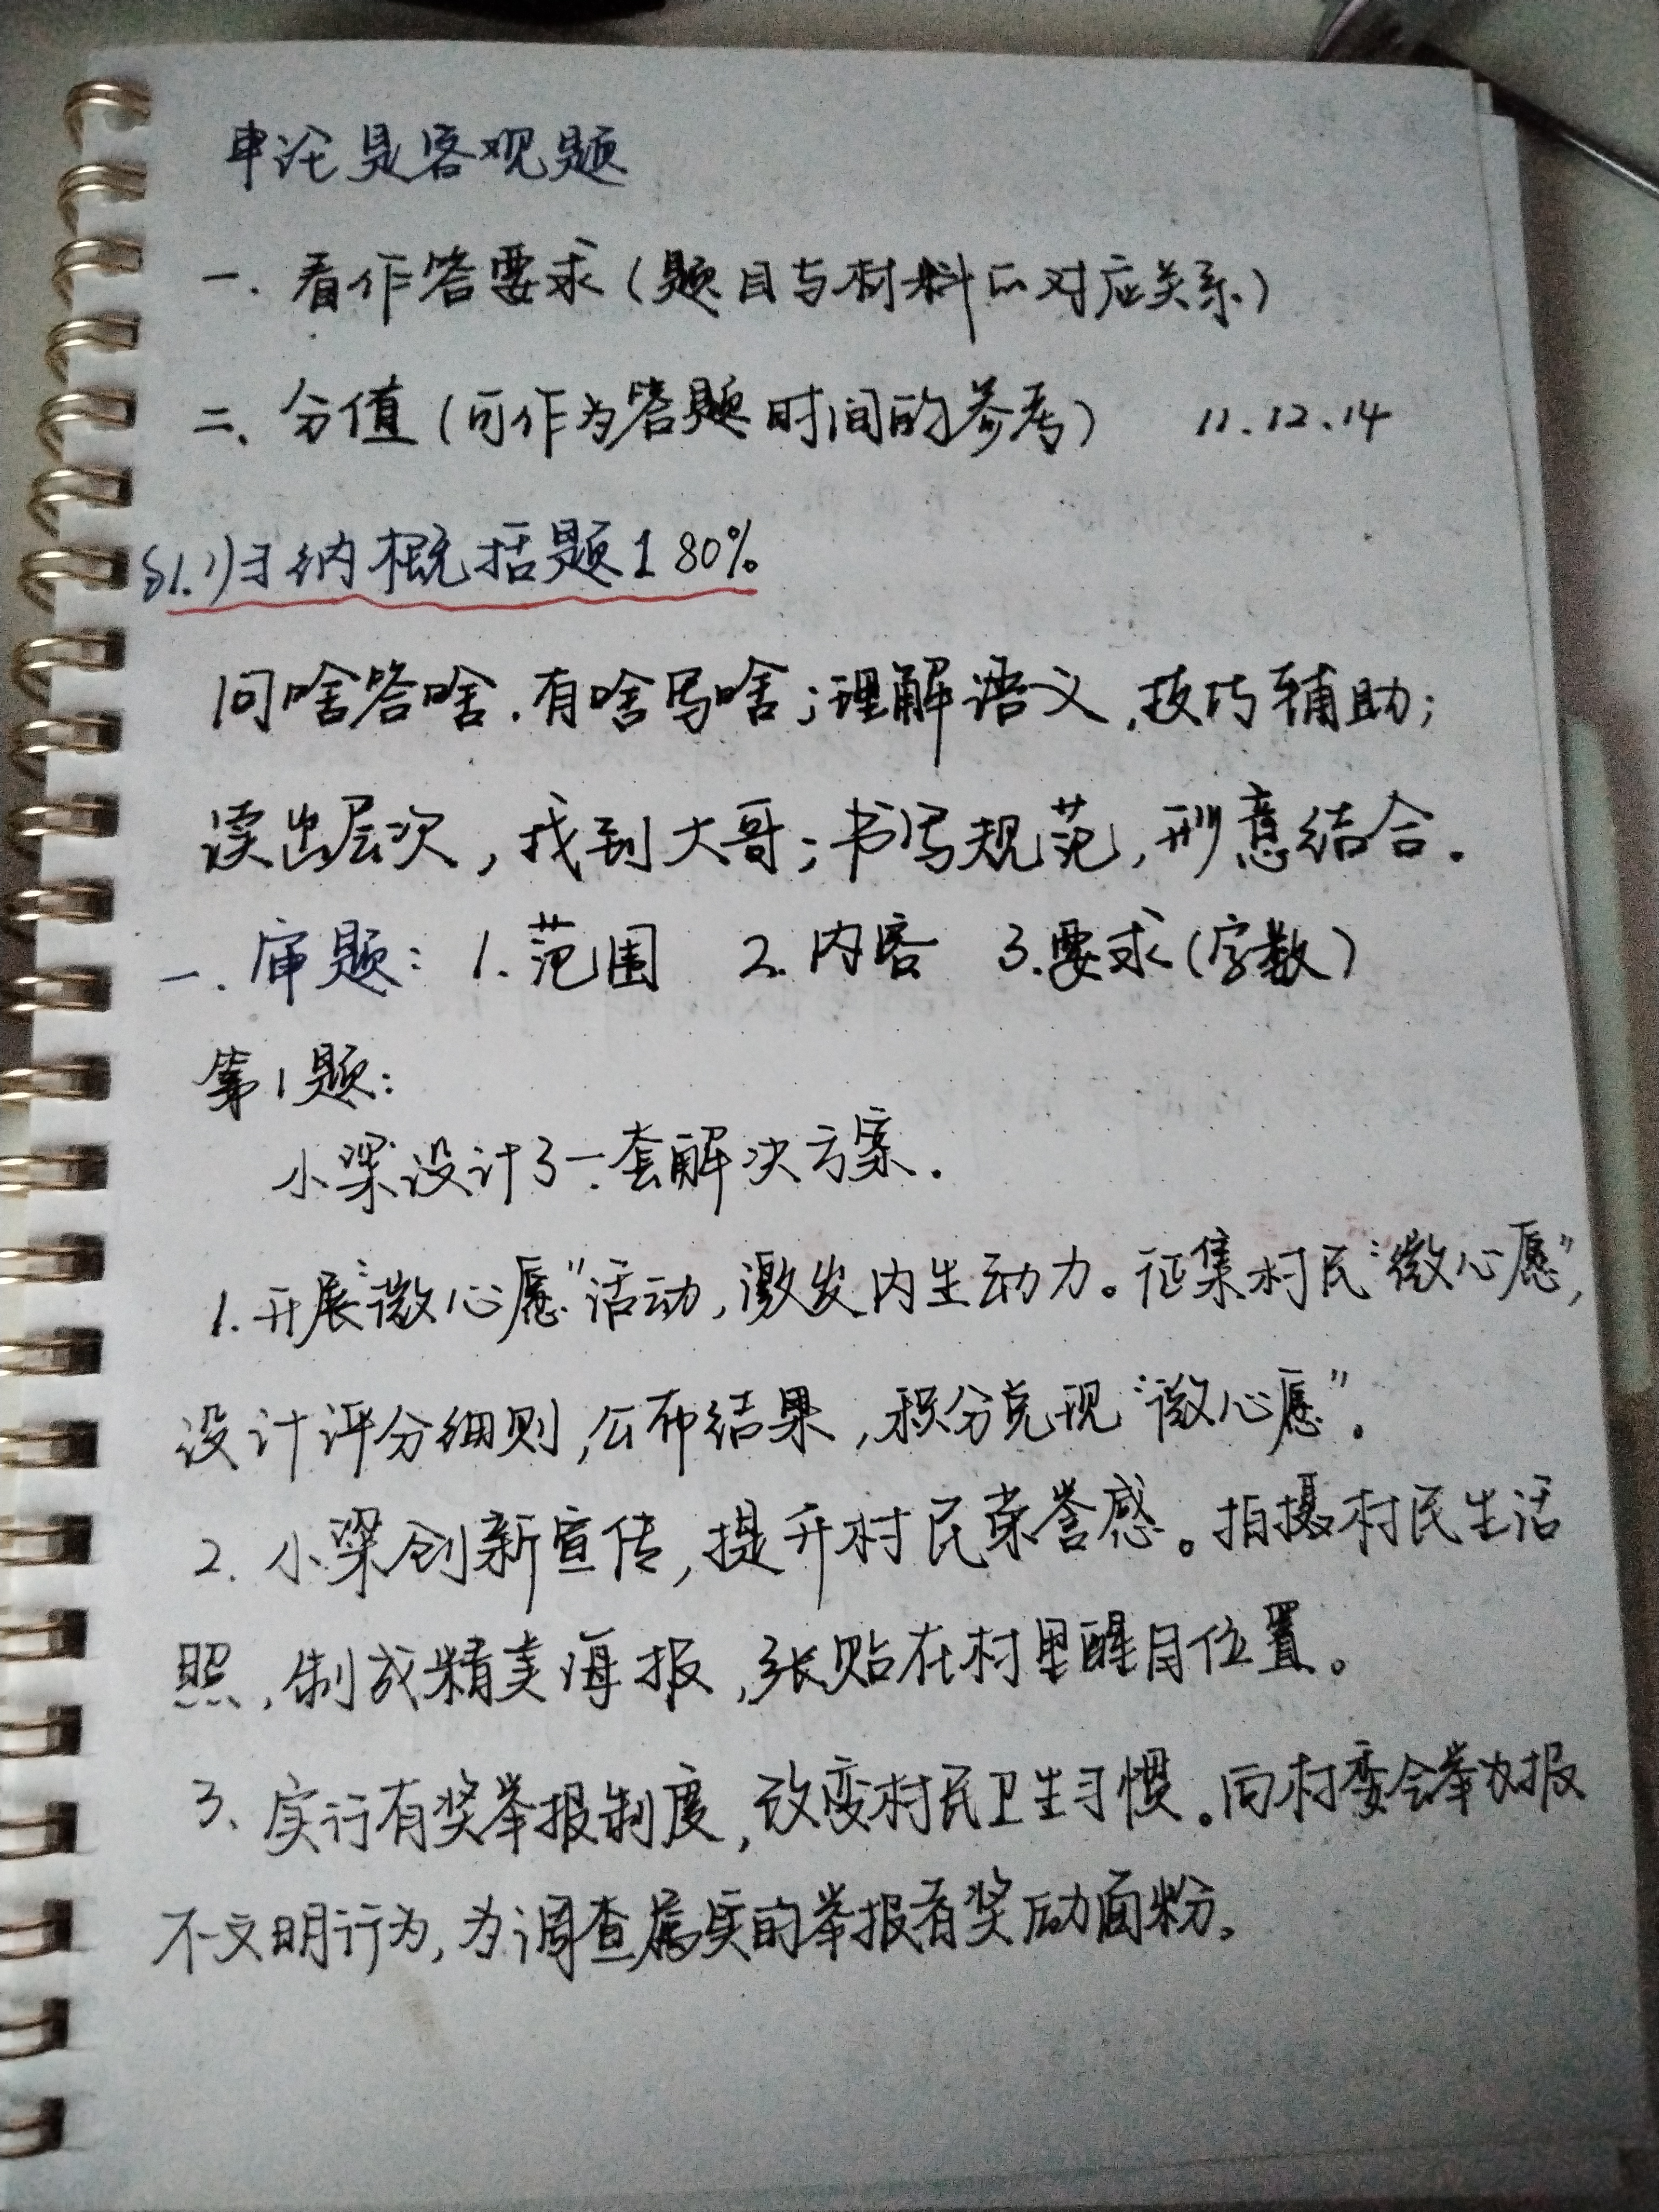 申论是客观题
一. 看作答要求(题目与材料的对应关系)
二、分值(可作为答题时间的参考) 11.12.14
§1.归纳概括题1 80%
问啥答啥.有啥写啥;理解语义,技巧辅助;
读出层次,找到大哥;书写规范,形意结合.
一.审题: 1.范围 2.内容 3.要求(字数)
第1题:
小梁设计了一套解决方案.
1.开展“微心愿”活动,激发内生动力。征集村民“微心愿”,
设计评分细则,公布结果,积分兑现“微心愿”.
2. 小梁创新宣传,提升村民荣誉感。拍摄村民生活
照,制成精美海报,张贴在村里醒目位置。
3、实行有奖举报制度,改变村民卫生习惯。向村委会举报
不文明行为,为调查属实的举报者奖励面粉。